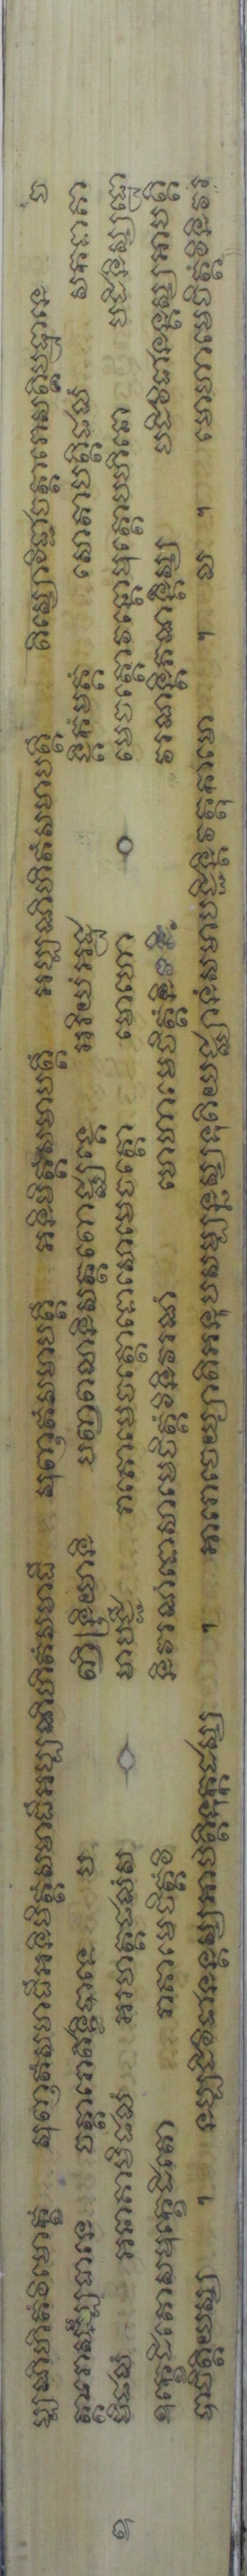 ប្បណិហិតំវិមោក្ខំ សុញ្ញតំសមាធឹអនិមិត្តំសមាធឹអប្បណិហិតំសមាធឹ សុញ្ញតំសមាបត្តឹ អនិមិត្តំសមាបត្តឹ អប្បណិហិតំសមាបត្តឹ តិស្សោវិជ្ជាចត្តារោសតិប្បដ្ឋានេ ច
ត្តារោសម្មប្បធានេ ចត្តារោឥទ្ធិបាទេ ប ញ្ចិន្ទ្រិយានិ បញ្ចពលានិសត្តពោជ្ឈង្គេ អរិយំអដ្ឋ ង្គិកំមគ្គំ សោតាបត្តិផលំ សកទាគា
មិផលំ អនាគាមិផលំ អរហត្តផលំស មាបជ្ជឹ រាគោមេចត្តោទោសោមេចត្តោ មោហោ មេចត្តោវន្តោមុត្តោបហីនោ បដិនិស្សដ្ឋោ
ឧក្ខេដិតោសមុក្ខេដិតោ រាគាមេចិត្តំវិ និវរណំទោសាមេចិត្តំវិនិវរណំ មោហាមេចិត្តំវិនិ វរណន្តិភណន្តស្ស បដិវិជានន្តស្សអាបត្តិ
បាចិត្តិយស្ស ។ នប្បដិវិជានន្តស្សអាបត្តិទុក្កដស្ស ។ អារោចេយ្យាតិអនុបសម្បន្នស្សទុតិយជ្ឈានំសមាបជ្ជិន្តិវត្តុកាមោ ។ ល ។ មោហាមេចិត្តំវិនិវរ